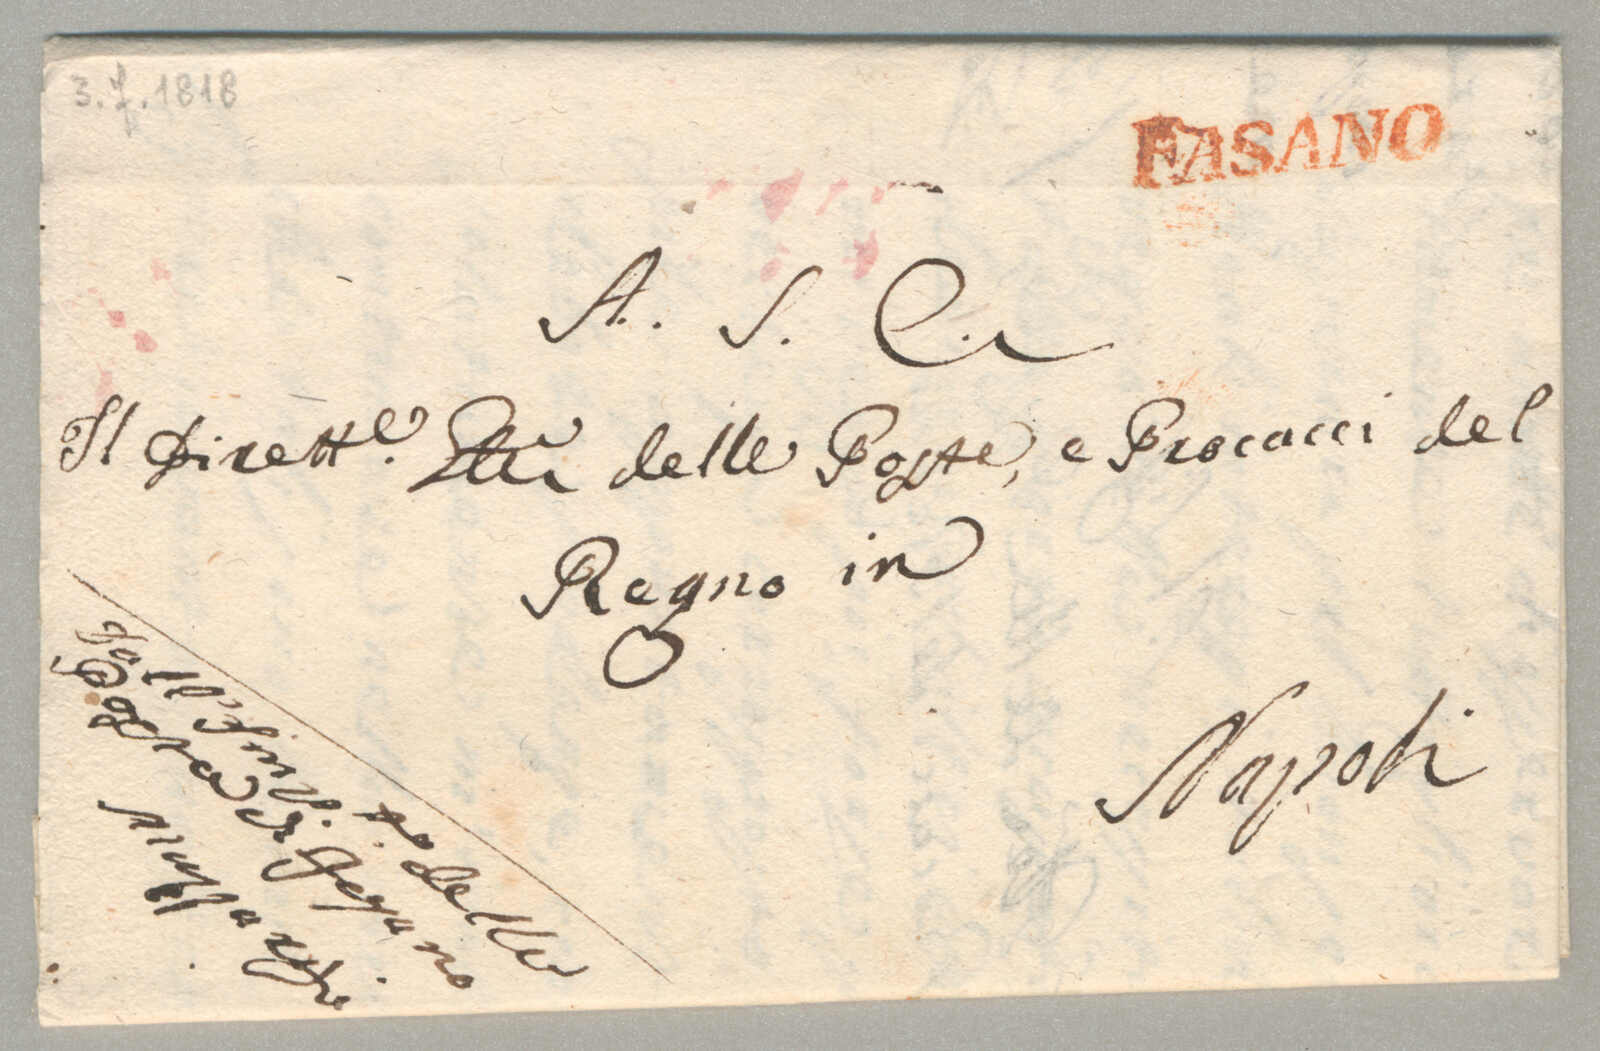 3.7.1818
FASANO
A. S. E.
Il Dirett.e delle Poste, e Procacci del
Regno in
Napoli
Da dell'
Posta di Fasano